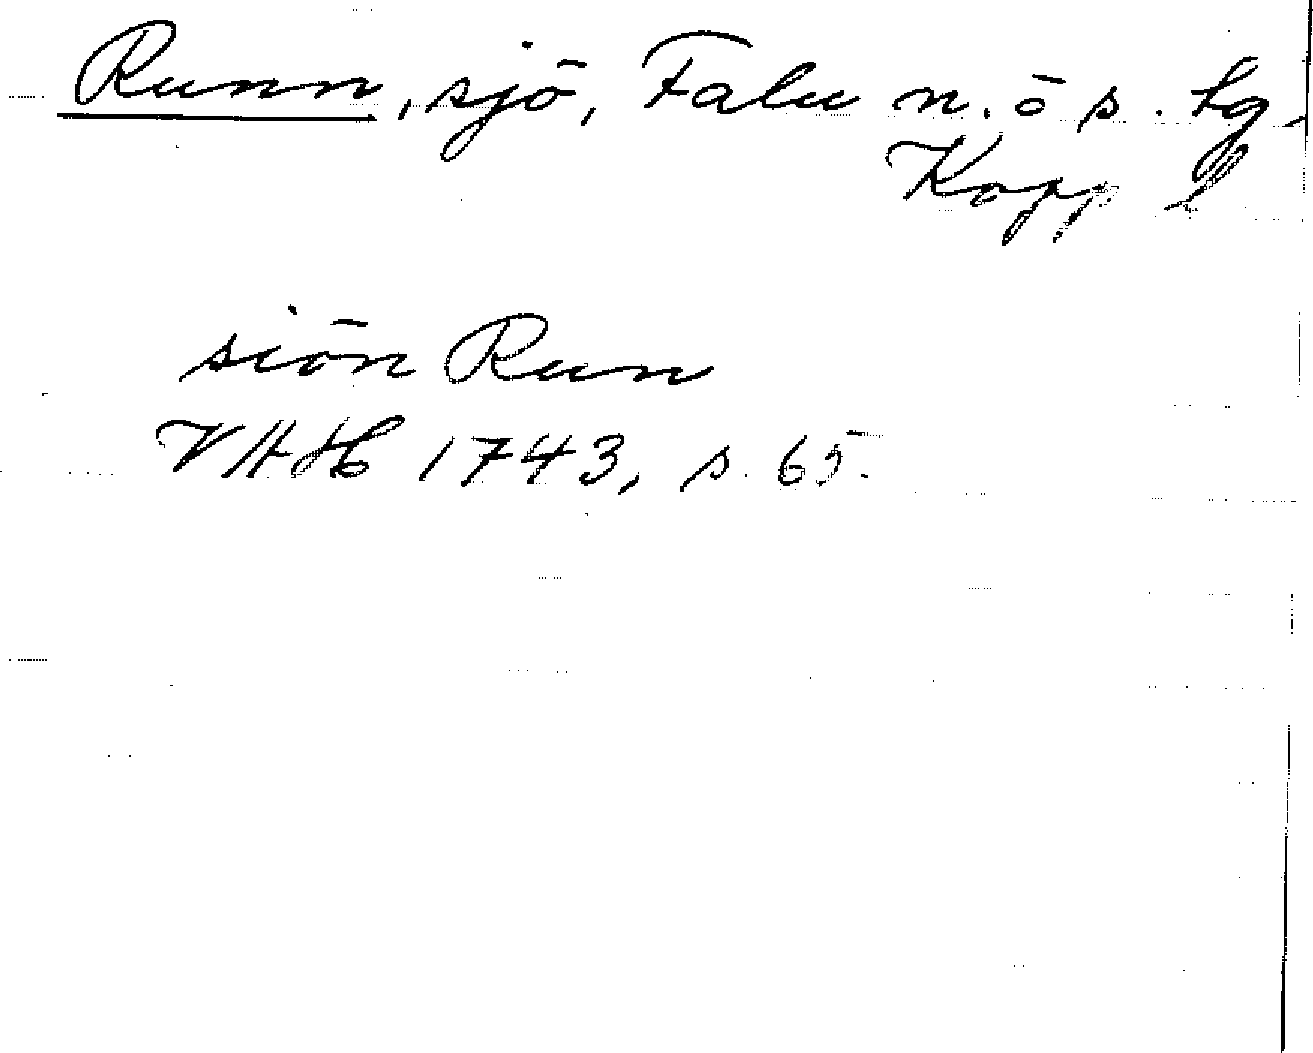 Runn, sjö, Falu n. ö s. tg.
Kopp l
siön Run
VAH 1743, s. 65.